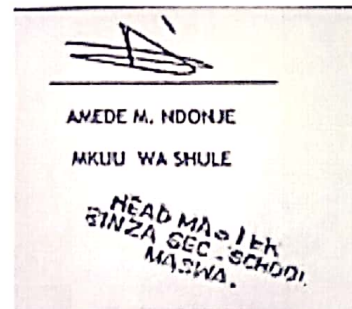 AMEDE M. NDONJE
MKUU WA SHULE
HEAD MASTER
BINZA SEC. SCHOOL
MASWA.